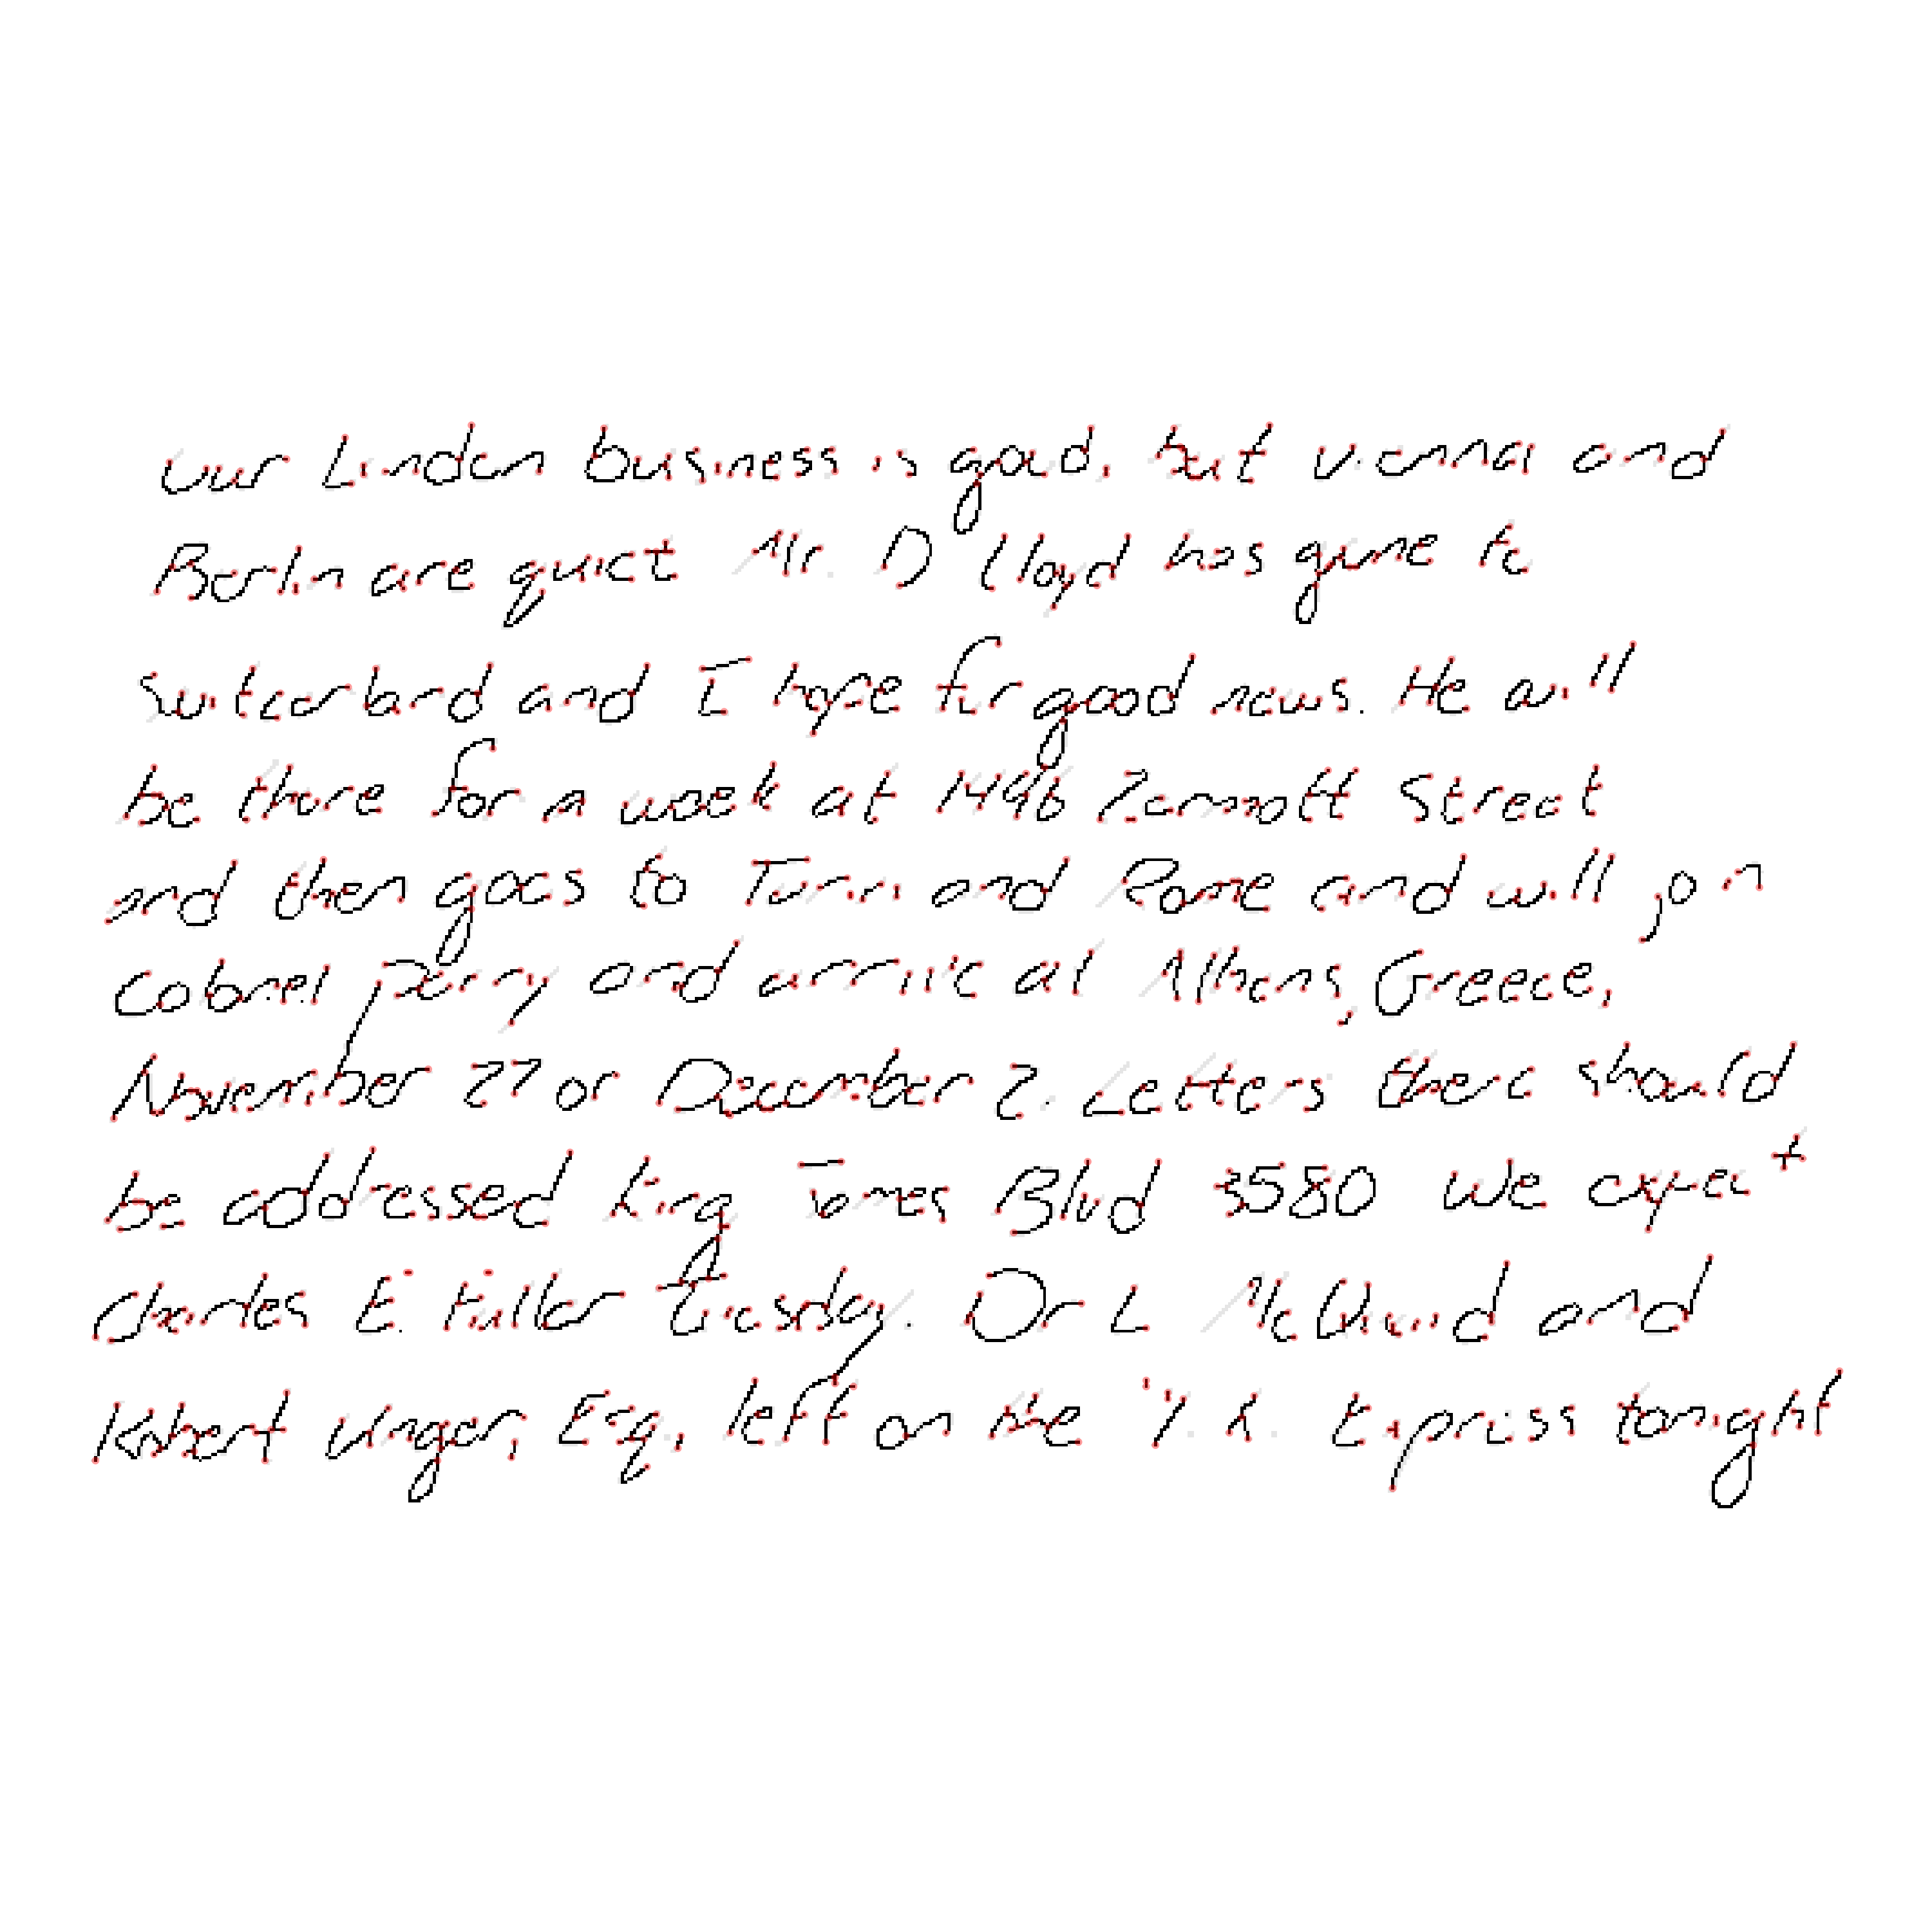 Our London business is good, but Vienna and
Berlin are quiet Mr. D Lloyd has gone to
Switzerland and I hope for good news. He will
be there for a week at 1496 Zermott Street
and then goes to Turin and Rome and will join
Colonel Parry and arrive at Athens, Greece,
November 27 or December 2. Letters there should
be addressed King James Blvd 3580 We expect
Charles E. Fuller Tuesday. Dr L McQuaid and
Robert Unger, Esq, left on the Y. X. Express tonight